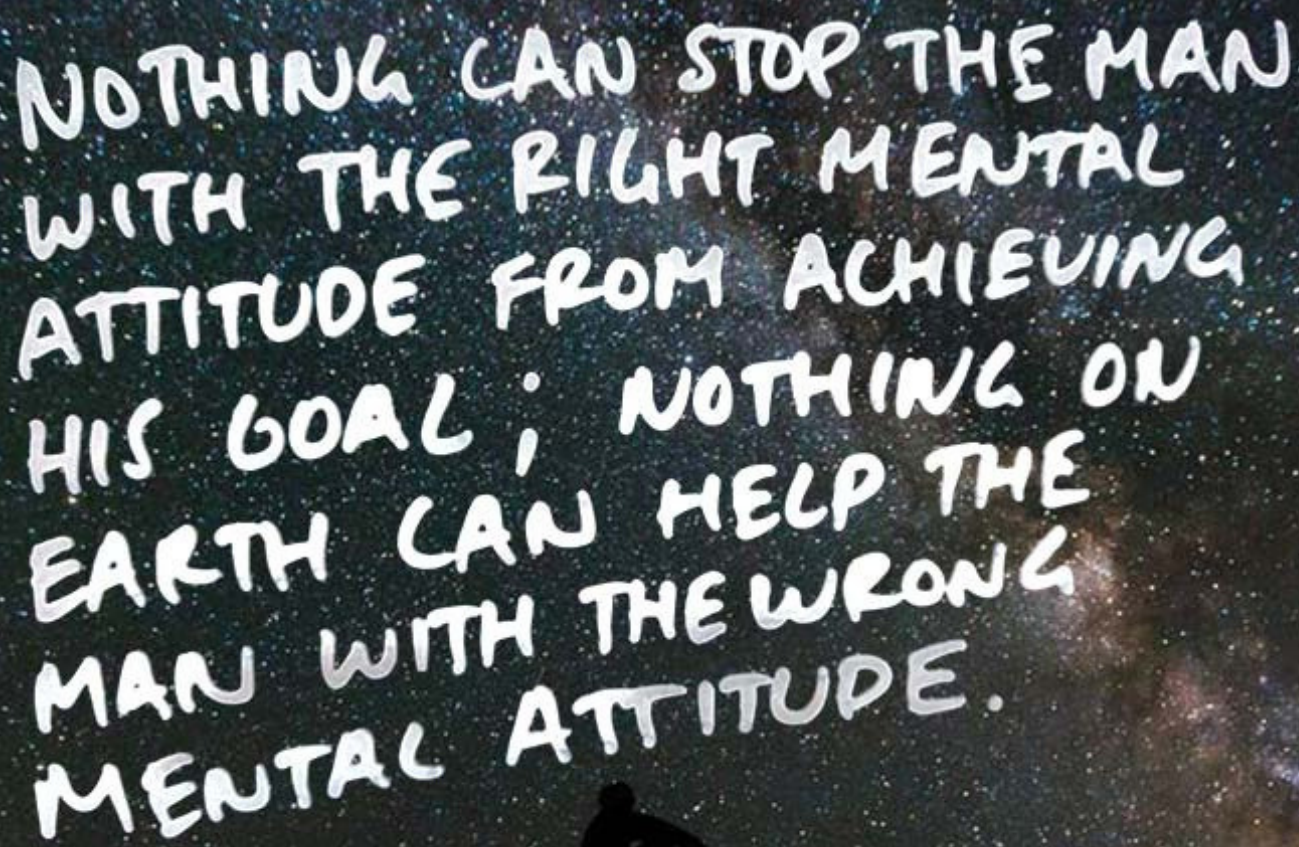 NOTHING CAN STOP THE MAN
WITH THE RIGHT MENTAL
ATTITUDE FROM ACHIEVING
HIS GOAL; NOTHING ON
EARTH CAN HELP THE
MAN WITH THE WRONG
MENTAL ATTITUDE.